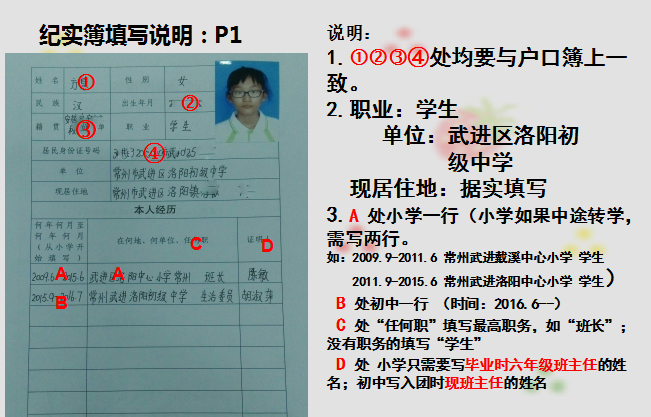 纪实簿填写说明：P1
姓 名 方 ① 性 别 女
民 族 汉 出生年月 ②
籍 贯 ③ 职 业 学生
居民身份证号码 ④
单 位 常州市武进区洛阳初级中学
现居住地 常州市武进区洛阳镇
本人经历
何年何月至
何年何月
（从小学开
始填写）
在何地、何单位、任何职 C
证明人 D
A 2009.6-2015.6 武进区洛阳中心小学常州 A 班长 陈敏
2015.9-2016.7 常州武进洛阳初级中学 生活委员 胡淑萍
B
说明：
1.①②③④处均要与户口簿上一
致。
2.职业：学生
单位：武进区洛阳初
级中学
现居住地：据实填写
3.A 处小学一行（小学如果中途转学，
需写两行。
如：2009.9-2011.6 常州武进戴溪中心小学 学生
2011.9-2015.6 常州武进洛阳中心小学 学生）
B 处初中一行 （时间：2016.6--）
C 处“任何职”填写最高职务，如“班长”；
没有职务的填写“学生”
D 处 小学只需要写毕业时六年级班主任的姓
名；初中写入团时现班主任的姓名